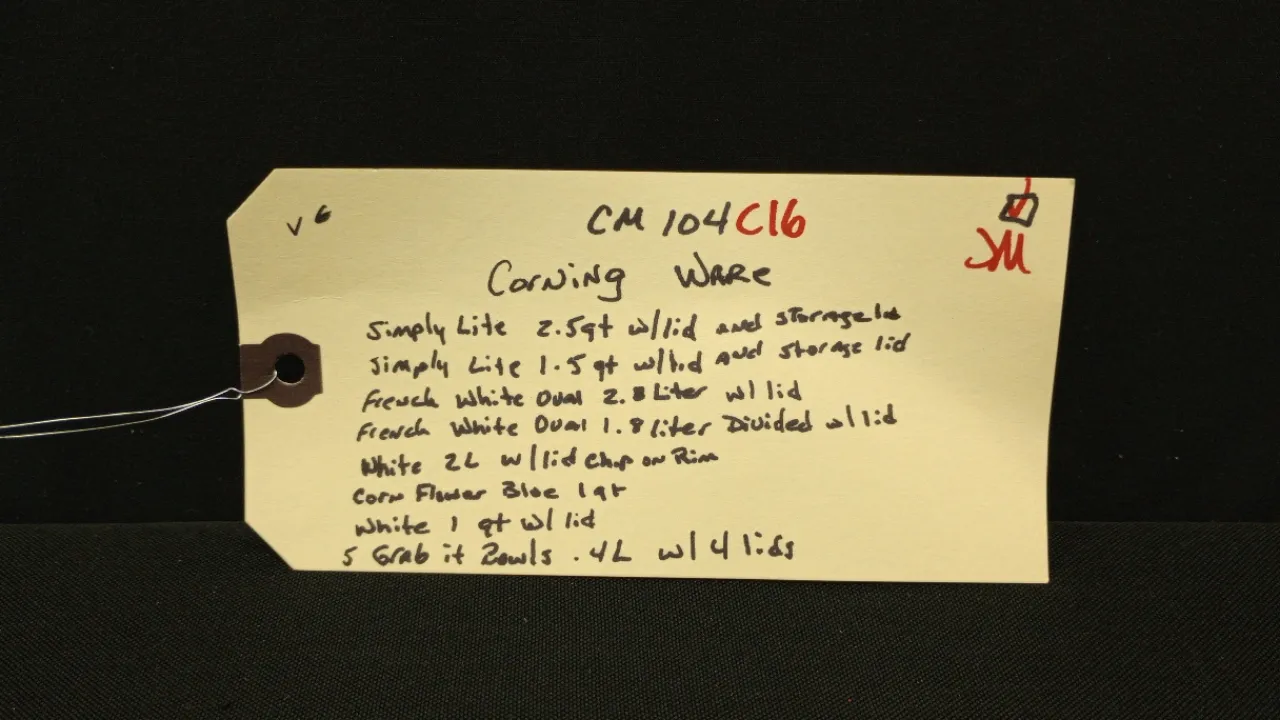 V6
CM 104 C16
JM
Corning Ware
Simply Lite 2.5qt w/lid and storage lid
Simply Lite 1.5 qt w/lid and storage lid
French White Oval 2.8 Liter w/ lid
French White Oval 1.8 liter Divided w/ lid
White 2L w/lid Chip on Rim
Corn Flower Bloe 1 qt
White 1 qt w/ lid
5 Grab it Bowls .4L w/ 4 lids